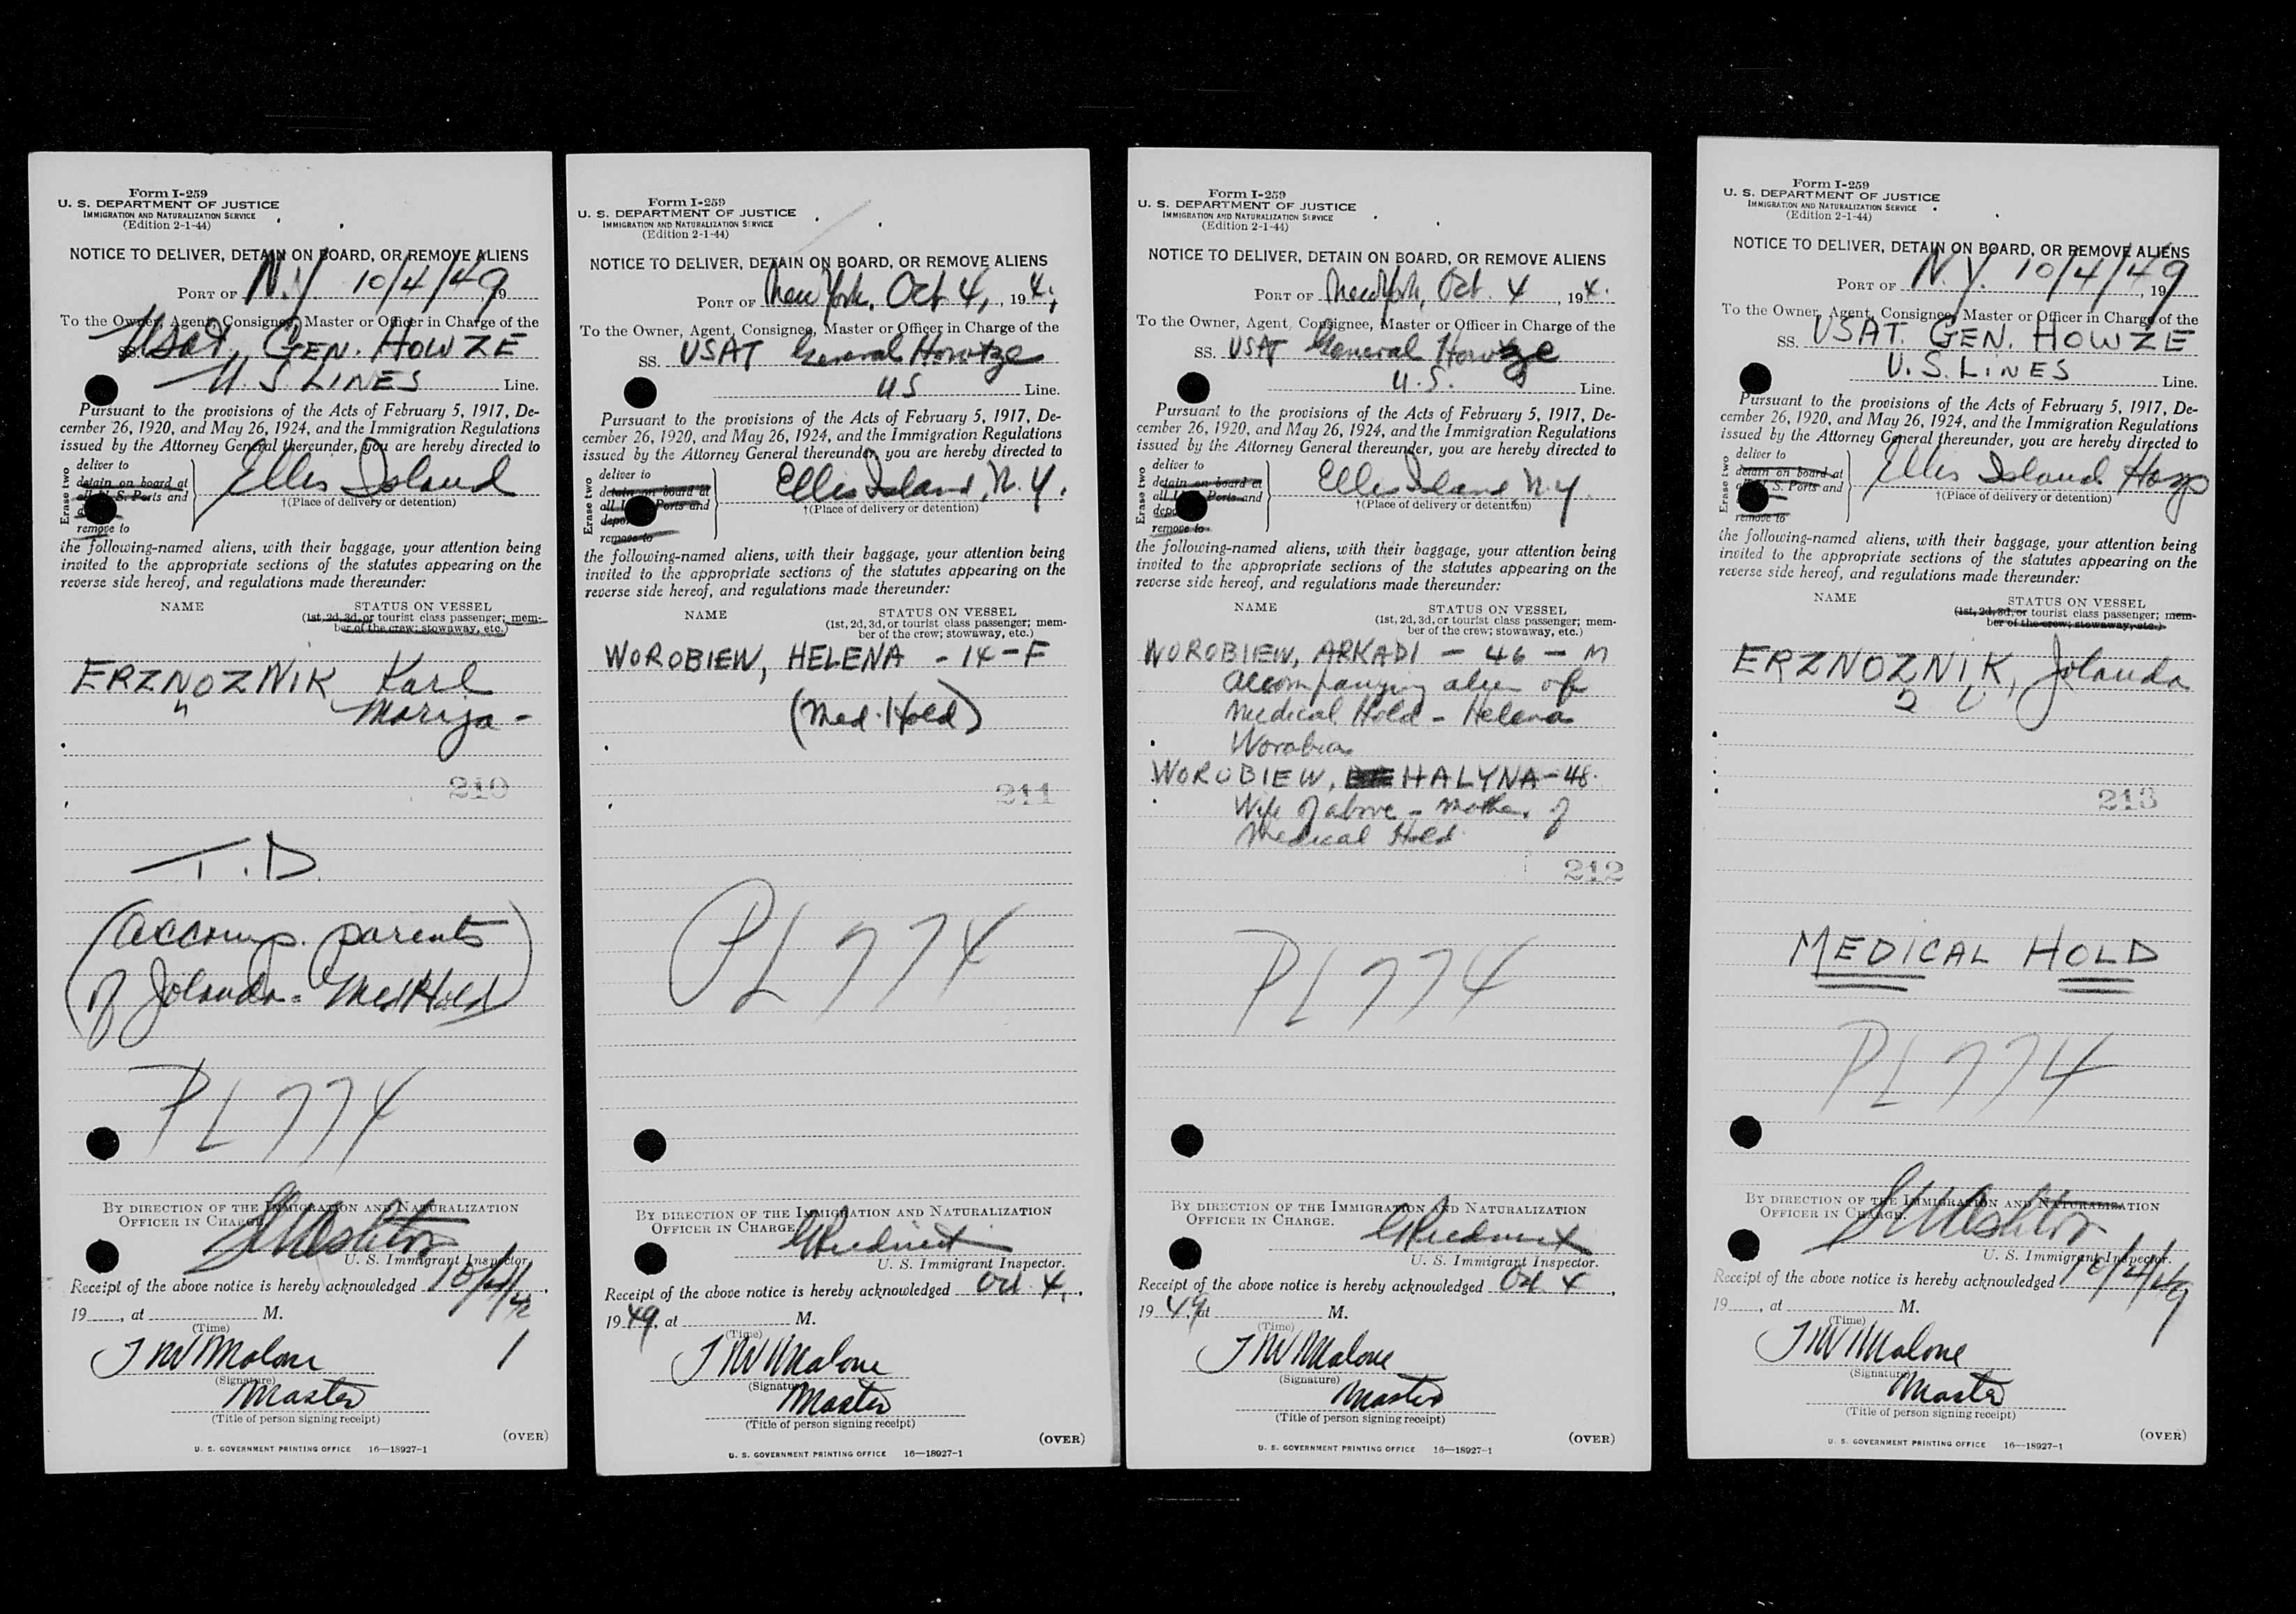 Form I-259
U. S. DEPARTMENT OF JUSTICE
IMMIGRATION AND NATURALIZATION SERVICE
(Edition 2-1-44)
NOTICE TO DELIVER, DETAIN ON BOARD, OR REMOVE ALIENS
PORT OF N.Y. 10/4/49 19
To the Owner, Agent, Consignee, Master or Officer in Charge of the
SS. USAT, GEN. HOWZE
U.S LINES Line.
Pursuant to the provisions of the Acts of February 5, 1917, De-
cember 26, 1920, and May 26, 1924, and the Immigration Regulations
issued by the Attorney General thereunder, you are hereby directed to
Erase two
deliver to
detain on board at
all U. S. Ports and
remove to
Ellis Island
†(Place of delivery or detention)
the following-named aliens, with their baggage, your attention being
invited to the appropriate sections of the statutes appearing on the
reverse side hereof, and regulations made thereunder:
NAME STATUS ON VESSEL
(1st, 2d, 3d, or tourist class passenger; mem-
ber of the crew; stowaway, etc.)
ERZNOZNIK, Karl
" Marija -
210
T.D.
(accomp. parents
of Jolanda - Med Hold)
PL 774
BY DIRECTION OF THE IMMIGRATION AND NATURALIZATION
OFFICER IN CHARGE.
U. S. Immigrant Inspector.
Receipt of the above notice is hereby acknowledged 10/4/49,
19 , at M.
(Time)
J W Malone
(Signature)
Master
(Title of person signing receipt)
(OVER)
U. S. GOVERNMENT PRINTING OFFICE 16—18927-1
Form I-259
U. S. DEPARTMENT OF JUSTICE
IMMIGRATION AND NATURALIZATION SERVICE
(Edition 2-1-44)
NOTICE TO DELIVER, DETAIN ON BOARD, OR REMOVE ALIENS
PORT OF New York, Oct 4, , 194
To the Owner, Agent, Consignee, Master or Officer in Charge of the
SS. USAT General Howtze
US Line.
Pursuant to the provisions of the Acts of February 5, 1917, De-
cember 26, 1920, and May 26, 1924, and the Immigration Regulations
issued by the Attorney General thereunder, you are hereby directed to
Erase two
deliver to
detain on board at
all Ports and
remove to
Ellis Island, N.Y.
†(Place of delivery or detention)
the following-named aliens, with their baggage, your attention being
invited to the appropriate sections of the statutes appearing on the
reverse side hereof, and regulations made thereunder:
NAME STATUS ON VESSEL
(1st, 2d, 3d, or tourist class passenger; mem-
ber of the crew; stowaway, etc.)
WOROBIEW, HELENA - 14 - F
(Med. Hold)
211
PL 774
BY DIRECTION OF THE IMMIGRATION AND NATURALIZATION
OFFICER IN CHARGE.
U. S. Immigrant Inspector.
Receipt of the above notice is hereby acknowledged Oct 4,
1949, at M.
(Time)
J W Malone
(Signature)
Master
(Title of person signing receipt)
(OVER)
U. S. GOVERNMENT PRINTING OFFICE 16—18927-1
Form I-259
U. S. DEPARTMENT OF JUSTICE
IMMIGRATION AND NATURALIZATION SERVICE
(Edition 2-1-44)
NOTICE TO DELIVER, DETAIN ON BOARD, OR REMOVE ALIENS
PORT OF New York, Oct. 4 , 194
To the Owner, Agent, Consignee, Master or Officer in Charge of the
SS. USAT General Howze
U.S. Line.
Pursuant to the provisions of the Acts of February 5, 1917, De-
cember 26, 1920, and May 26, 1924, and the Immigration Regulations
issued by the Attorney General thereunder, you are hereby directed to
Erase two
deliver to
detain on board at
all Ports and
remove to
Ellis Island, N.Y.
†(Place of delivery or detention)
the following-named aliens, with their baggage, your attention being
invited to the appropriate sections of the statutes appearing on the
reverse side hereof, and regulations made thereunder:
NAME STATUS ON VESSEL
(1st, 2d, 3d, or tourist class passenger; mem-
ber of the crew; stowaway, etc.)
WOROBIEW, ARKADI - 46 - M
accompanying alien of
Medical Hold - Helena
WOROBIEW, HALYNA - 48.
Wife of above - mother of
Medical Hold
212
PL 774
BY DIRECTION OF THE IMMIGRATION AND NATURALIZATION
OFFICER IN CHARGE.
U. S. Immigrant Inspector.
Receipt of the above notice is hereby acknowledged Oct. 4 ,
1949, at M.
(Time)
J W Malone
(Signature)
Master
(Title of person signing receipt)
(OVER)
U. S. GOVERNMENT PRINTING OFFICE 16—18927-1
Form I-259
U. S. DEPARTMENT OF JUSTICE
IMMIGRATION AND NATURALIZATION SERVICE
(Edition 2-1-44)
NOTICE TO DELIVER, DETAIN ON BOARD, OR REMOVE ALIENS
PORT OF N.Y. 10/4/49 , 19
To the Owner, Agent, Consignee, Master or Officer in Charge of the
SS. USAT. GEN. HOWZE
U.S. LINES Line.
Pursuant to the provisions of the Acts of February 5, 1917, De-
cember 26, 1920, and May 26, 1924, and the Immigration Regulations
issued by the Attorney General thereunder, you are hereby directed to
Erase two
deliver to
detain on board at
S. Ports and
remove to
Ellis Island Hosp
†(Place of delivery or detention)
the following-named aliens, with their baggage, your attention being
invited to the appropriate sections of the statutes appearing on the
reverse side hereof, and regulations made thereunder:
NAME STATUS ON VESSEL
(1st, 2d, 3d, or tourist class passenger; mem-
ber of the crew; stowaway, etc.)
ERZNOZNIK, Jolanda
213
MEDICAL HOLD
PL 774
BY DIRECTION OF THE IMMIGRATION AND NATURALIZATION
OFFICER IN CHARGE.
U. S. Immigrant Inspector.
Receipt of the above notice is hereby acknowledged 10/4/49
19 , at M.
(Time)
J W Malone
(Signature)
Master
(Title of person signing receipt)
(OVER)
U. S. GOVERNMENT PRINTING OFFICE 16—18927-1